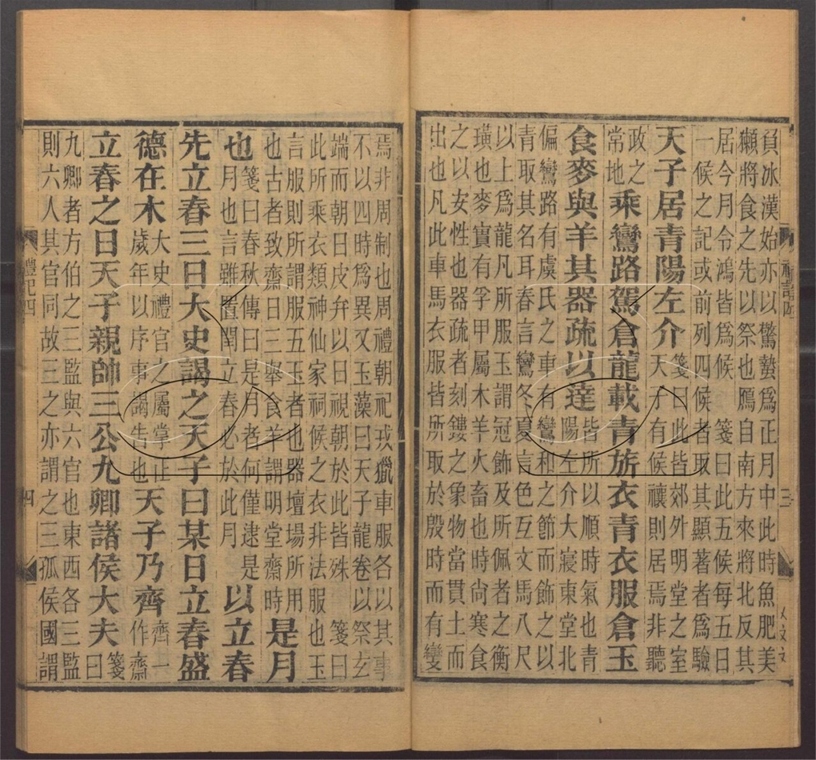 負冰漢始亦以驚蟄為正月中此時魚肥美
獺將食之先以祭也鴈自南方來將北反其
居今月令鴻皆為候 箋曰此五候每五日
一候之記或前列四候者取其顯著者為驗
天子居青陽左介 箋曰此皆郊外明堂之室 天子有候禳則居焉非聽
政之 常地 乘鸞路駕倉龍載青旂衣青衣服倉玉
食麥與羊其器疏以達 皆所以順時氣也青 陽左介大寢東堂北
偏鸞路有虞氏之車有鸞和之節而飾之以
青取其名耳春言鸞冬夏言色互文馬八尺
以上爲龍凡所服玉謂冠飾及所佩者之衡
璜也麥實有孚甲屬木羊火畜也時尚寒食
之以女性也器疏者刻鏤之象物當貫土而
出也凡此車馬衣服皆所取於殷時而有變
焉非周制也周禮朝祀戎獵車服各以其事
不以四時爲異又玉藻曰天子龍卷以祭玄
端而朝日皮弁以日視朝於此皆殊 箋曰
此所乘衣類神仙家祠候之衣非法服也玉
言服則所謂服五玉者也器壇場所用
也古者致齋日三舉食羊謂明堂齋時 是月
也 箋曰春秋傳曰是月者何僅逮是 月也言雖置閏立春必於此月 以立春
先立春三日大史謁之天子曰某日立春盛
德在木 大史禮官之屬掌正 歲年以序事謁告也 天子乃齊 齊一 作齋
立春之日天子親帥三公九卿諸侯大夫 箋曰
九卿者方伯之三監與六官也東西各三監
則六人其官同故三之亦謂之三孤侯國謂
禮記四
四